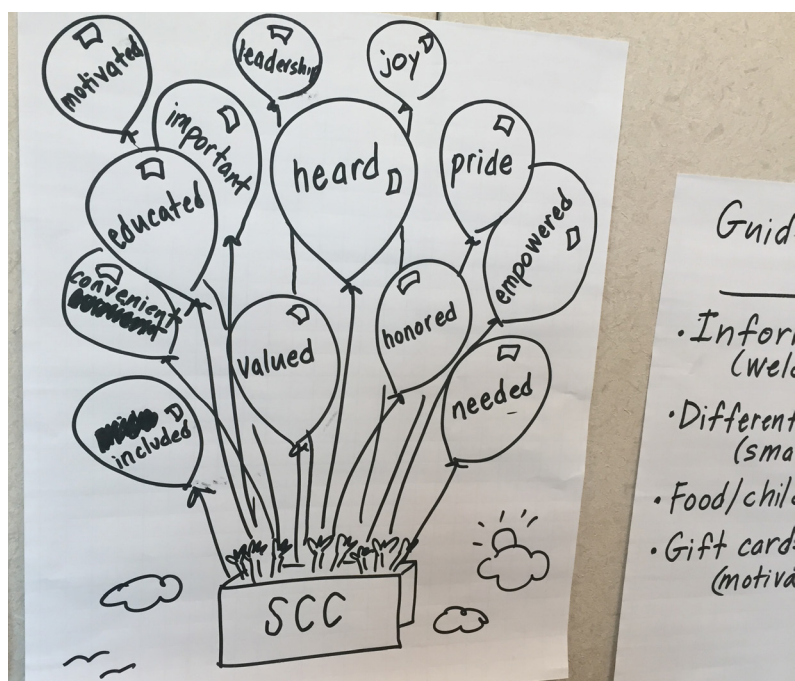 motivated
leadership
joy
important
heard
pride
educated
empowered
convenient
valued
honored
needed
included
SCC
Guid
• Infor
(wel
• Different
(sma
• Food/chil
• Gift card
(motiva